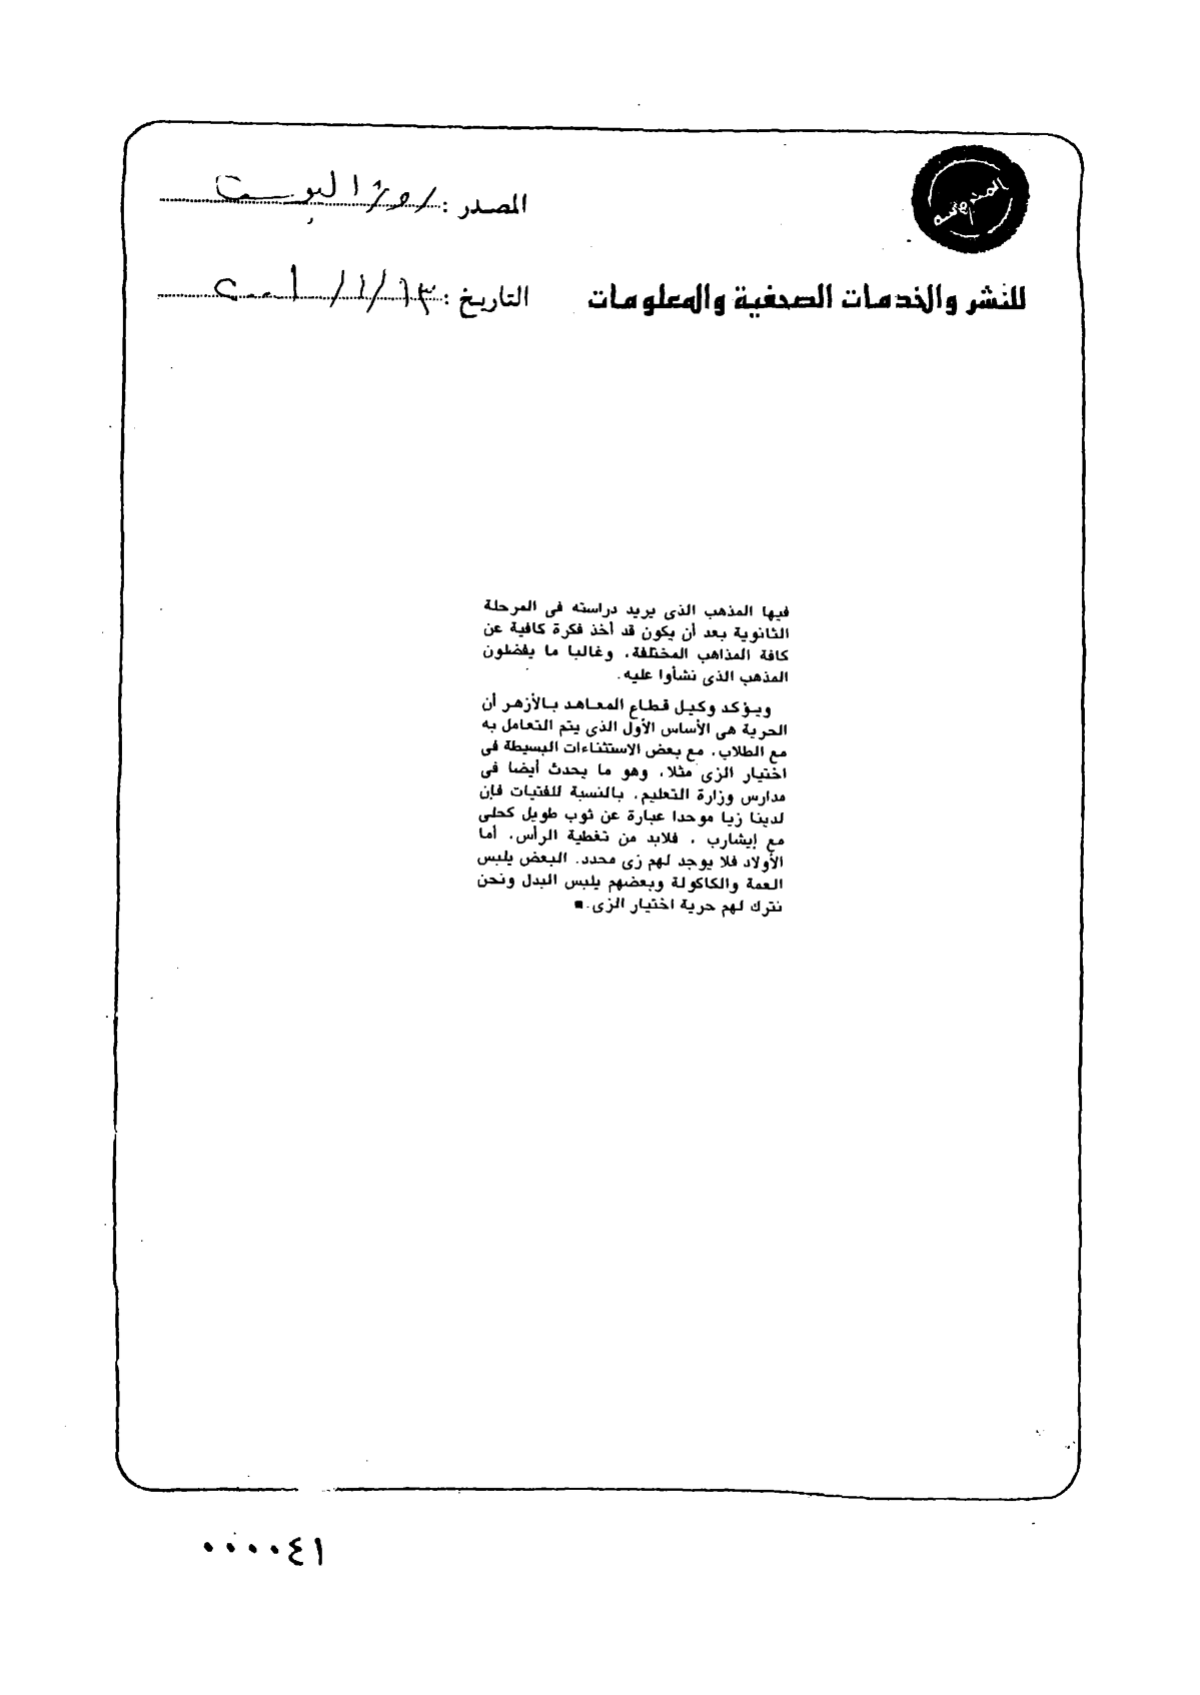 المصدر : روز اليوسف
للنشر والخدمات الصحفية والمعلومات
التاريخ : ١٣/١/٢٠٠١
فيها المذهب الذى يريد دراسته فى المرحلة
الثانوية بعد أن يكون قد أخذ فكرة كافية عن
كافة المذاهب المختلفة، وغالبا ما يفضلون
المذهب الذى نشأوا عليه.
ويؤكد وكيل قطاع المعاهد بالأزهر أن
الحرية هى الأساس الأول الذى يتم التعامل به
مع الطلاب، مع بعض الاستثناءات البسيطة فى
اختيار الزى مثلا، وهو ما يحدث أيضا فى
مدارس وزارة التعليم، بالنسبة للفتيات فإن
لدينا زيا موحدا عبارة عن ثوب طويل كحلى
مع إيشارب ، فلابد من تغطية الرأس، أما
الأولاد فلا يوجد لهم زى محدد، البعض يلبس
العمة والكاكولة وبعضهم يلبس البدل ونحن
نترك لهم حرية اختيار الزى.■
٠٠٠٠٤١